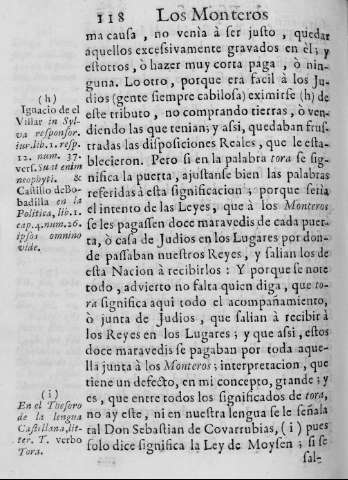 118 Los Monteros
ma causa, no venia à ser justo, quedar
aquellos excessivamente gravados en el; y
estotros, ò hazer muy corta paga, ò nin-
guna. Lo otro, porque era facil à los Ju-
dios (gente siempre cabilosa) eximirse (h) de
este tributo, no comprando tierras, ò ven-
diendo las que tenian; y assi, quedaban frus-
tradas las disposiciones Reales, que le esta-
blecieron. Pero si en la palabra tora se sig-
nifica la puerta, ajustanse bien las palabras
referidas à esta significacion; porque seria
el intento de las Leyes, que à los Monteros
se les pagassen doce maravedis de cada puer-
ta, ò casa de Judios en los Lugares por don-
de passaban nuestros Reyes, y salian los de
esta Nacion à recibirlos: Y porque se note
todo, advierto no falta quien diga, que to-
ra significa aqui todo el acompañamiento,
ò junta de Judios, que salian à recibir à
los Reyes en los Lugares; y que assi, estos
doce maravedis se pagaban por toda aque-
lla junta à los Monteros; interpretacion, que
tiene un defecto, en mi concepto, grande; y
es, que entre todos los significados de tora,
no ay este, ni en nuestra lengua se le señala
tal Don Sebastian de Covarrubias, (i) pues
solo dice significa la Ley de Moysen; si se
sal-
(h)
Ignacio de el
Villar in Sylv-
va responsor.
iur. lib. 1. resp.
12. num. 37.
vers. Sunt enim
neophyti. &
Castillo de Bo-
badilla en la
Politica, lib. 1.
cap. 4. num. 26.
ipsos omnino
vide.
(i)
En el Thesoro
de la lengua
Castellana, lit-
ter. T. verbo
Tora.